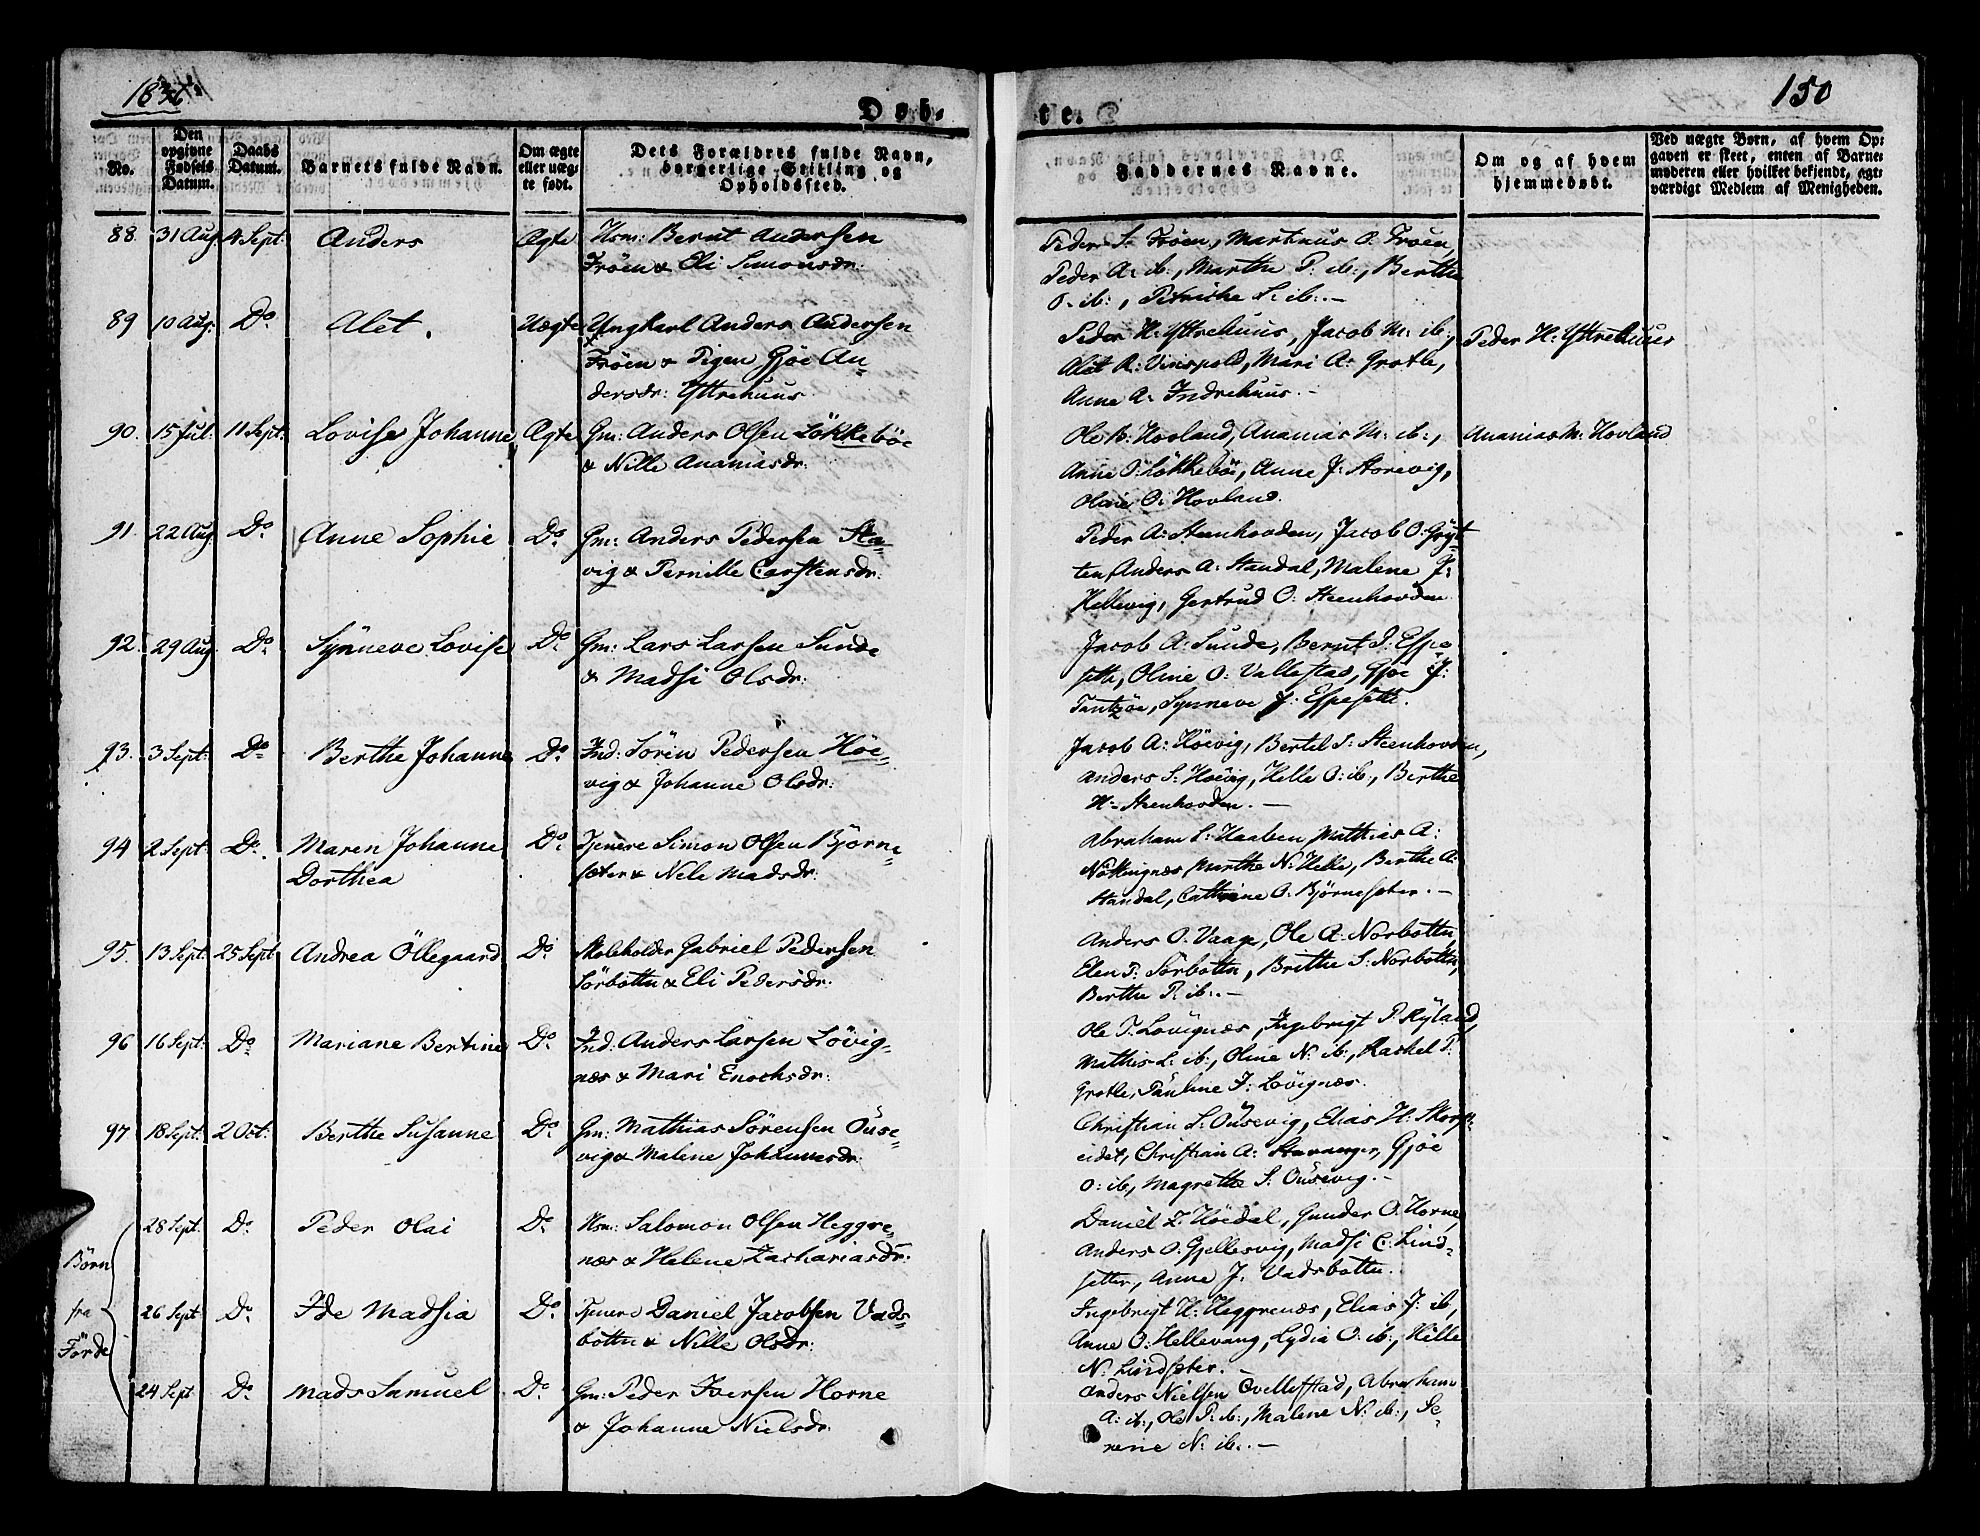 1836
150
Døb-
te.
No.
Den opgivne Fødsels Datum.
Daabs Datum.
Barnets fulde Navn.
Om ægte eller uægte født.
Dets Forældres fulde Navn, borgerlige Stilling og Opholdssted.
Faddernes Navne.
Om og af hvem hjemmedøbt.
Ved uægte Børn, af hvem Op-
gaven er skeet, enten af Barne-
moderen eller hvilket bekjendt, agt-
værdigt Medlem af Menigheden.
88. 31 Aug 4 Sept: Anders Ægte Hsm: Bernt Andersen
Frøen & Eli Simonsdr:
Peder S. Frøen, Martinus O. Frøen,
Peder A: ib:, Marthe P: ib:, Berthe
O. ib:, Petriche S: ib:. —
89 10 Aug: Do Alet. Uægte Ungkarl Anders Andersen
Frøen & Pigen Gjøe An-
dersdr: Yttrehuus.
Peder H: Yttrehuus, Jacob M: ib:,
Alet R: Vinspold, Mari A: Grotle,
Anne A: Indrehuus. —
Peder H: Yttrehuus
90. 15 Jul: 11 Sept: Lovise Johanne Ægte Gm: Anders Olsen Løkkebøe
& Nille Ananiasdr:
Ole B: Hovland, Ananias M: ib:,
Anne O: Løkkebøe, Anne J: Storevig,
Olave O: Hovland.
Ananias M: Hovland
91. 22 Aug Do Anne Sophie Do Gm: Anders Pedersen Sta-
vig & Pernille Carstensdr:
Peder A: Steenhovden, Jacob O: Gryt-
ten, Anders A: Standal, Malene J:
Hellevig, Gertrud O: Steenhovden
92. 29 Aug Do Synneve Lovise Do Gm: Lars Larsen Sunde
& Madsi Olsdr:
Jacob A: Sunde, Bernt P: Espe-
sette, Oline O: Vallestad, Gjøe J:
Tantzøe, Synneve J: Espesette.
93. 3 Sept: Do Berthe Johanne Do Ind: Sören Pedersen Høe-
vig & Johanne Olsdr:
Jacob A: Høevig, Bertil S: Steenhovden,
Anders S: Høevig, Helle O: ib:, Berthe
H: Steenhovden. —
94 2 Sept Do Maren Johanne
Dorthea
Do Tjenere Simon Olsen Björne-
sæter & Nele Madsdr:
Abraham S: Haaben, Mathias A:
Nökkingnæs, Marthe N: Helle, Berthe A:
Standal, Cathrine O. Bjørnesæter. —
95. 13 Sept: 25 Sept Andrea Öllegaard Do Skoleholder Gabriel Pedersen
Sörbotten & Eli Pedersdr:
Anders O. Vaage, Ole A: Norbotten
Elen P: Sörbotten, Brithe S: Norbotten,
Berthe P: ib:. —
96 16 Sept: Do Mariane Bertine Do Ind: Anders Larsen Lövig-
næs & Mari Enochsdr:
Ole P. Lövignæs, Ingebrigt P. Ryland,
Mathis L: ib:, Oline N: ib:, Rachel P:
Grotle, Pauline J: Lövignæs.
97 18 Sept: 2 Oct: Berthe Susanne Do Gm: Mathias Sörensen Ouse-
vig & Malene Johannesdr:
Christian S: Ousevig, Elias H: Skorp-
eidet, Christian A: Stavanger, Gjøe
O: ib, Magrethe S. Ousevig. —
Børn
fra
Førde
28 Sept: Do Peder Olai Do Hsm: Salomon Olsen Heggre-
næs & Helene Zachariasdr:
Daniel Z: Høedal, Gunder O. Horne,
Anders O. Gjellesvig, Madsi C: Lind-
setter, Anne J. Vadsbotten.
26 Sept: Do Ide Madsia Do Tjener Daniel Jacobsen Vads-
botten & Nille Olsdr:
Ingebrigt H: Heggrenæs, Elias J: ib,
Anne O: Hellevang, Lydia O: ib:, Hille
N: Lindsæter. —
24 Sept Do Mads Samuel Do Gm: Peder Iversen Horne
& Johanne Nielsdr:
Anders Nielsen Qvellestad, Abraham
A: ib:, Ole P: ib:, Malene N: ib:, Se-
rene N: ib:. —